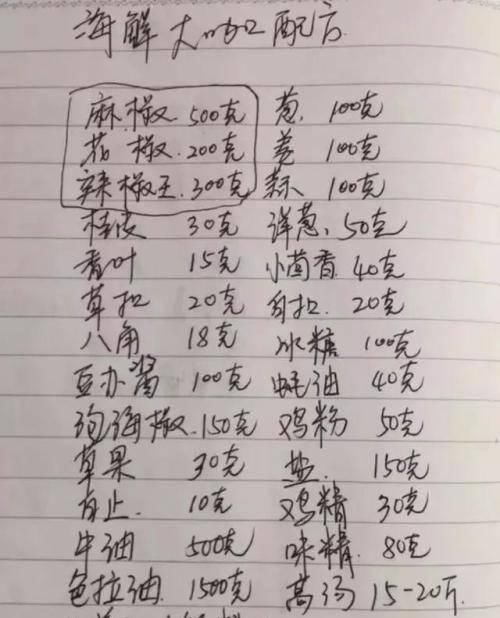 海鲜大咖配方
麻椒.500克 葱.100克
花椒.200克 姜 100克
辣椒王.300克 蒜 100克
桂皮 30克 洋葱.50克
香叶 15克 小茴香.40克
草扣 20克 白扣.20克
八角 18克 冰糖 100克
豆办酱 100克 蚝油 40克
泡海椒.150克 鸡粉 50克
草果 30克 盐.150克
白止.10克 鸡精 30克
牛油 500克 味精.80克
色拉油.1500克 高汤 15-20斤.